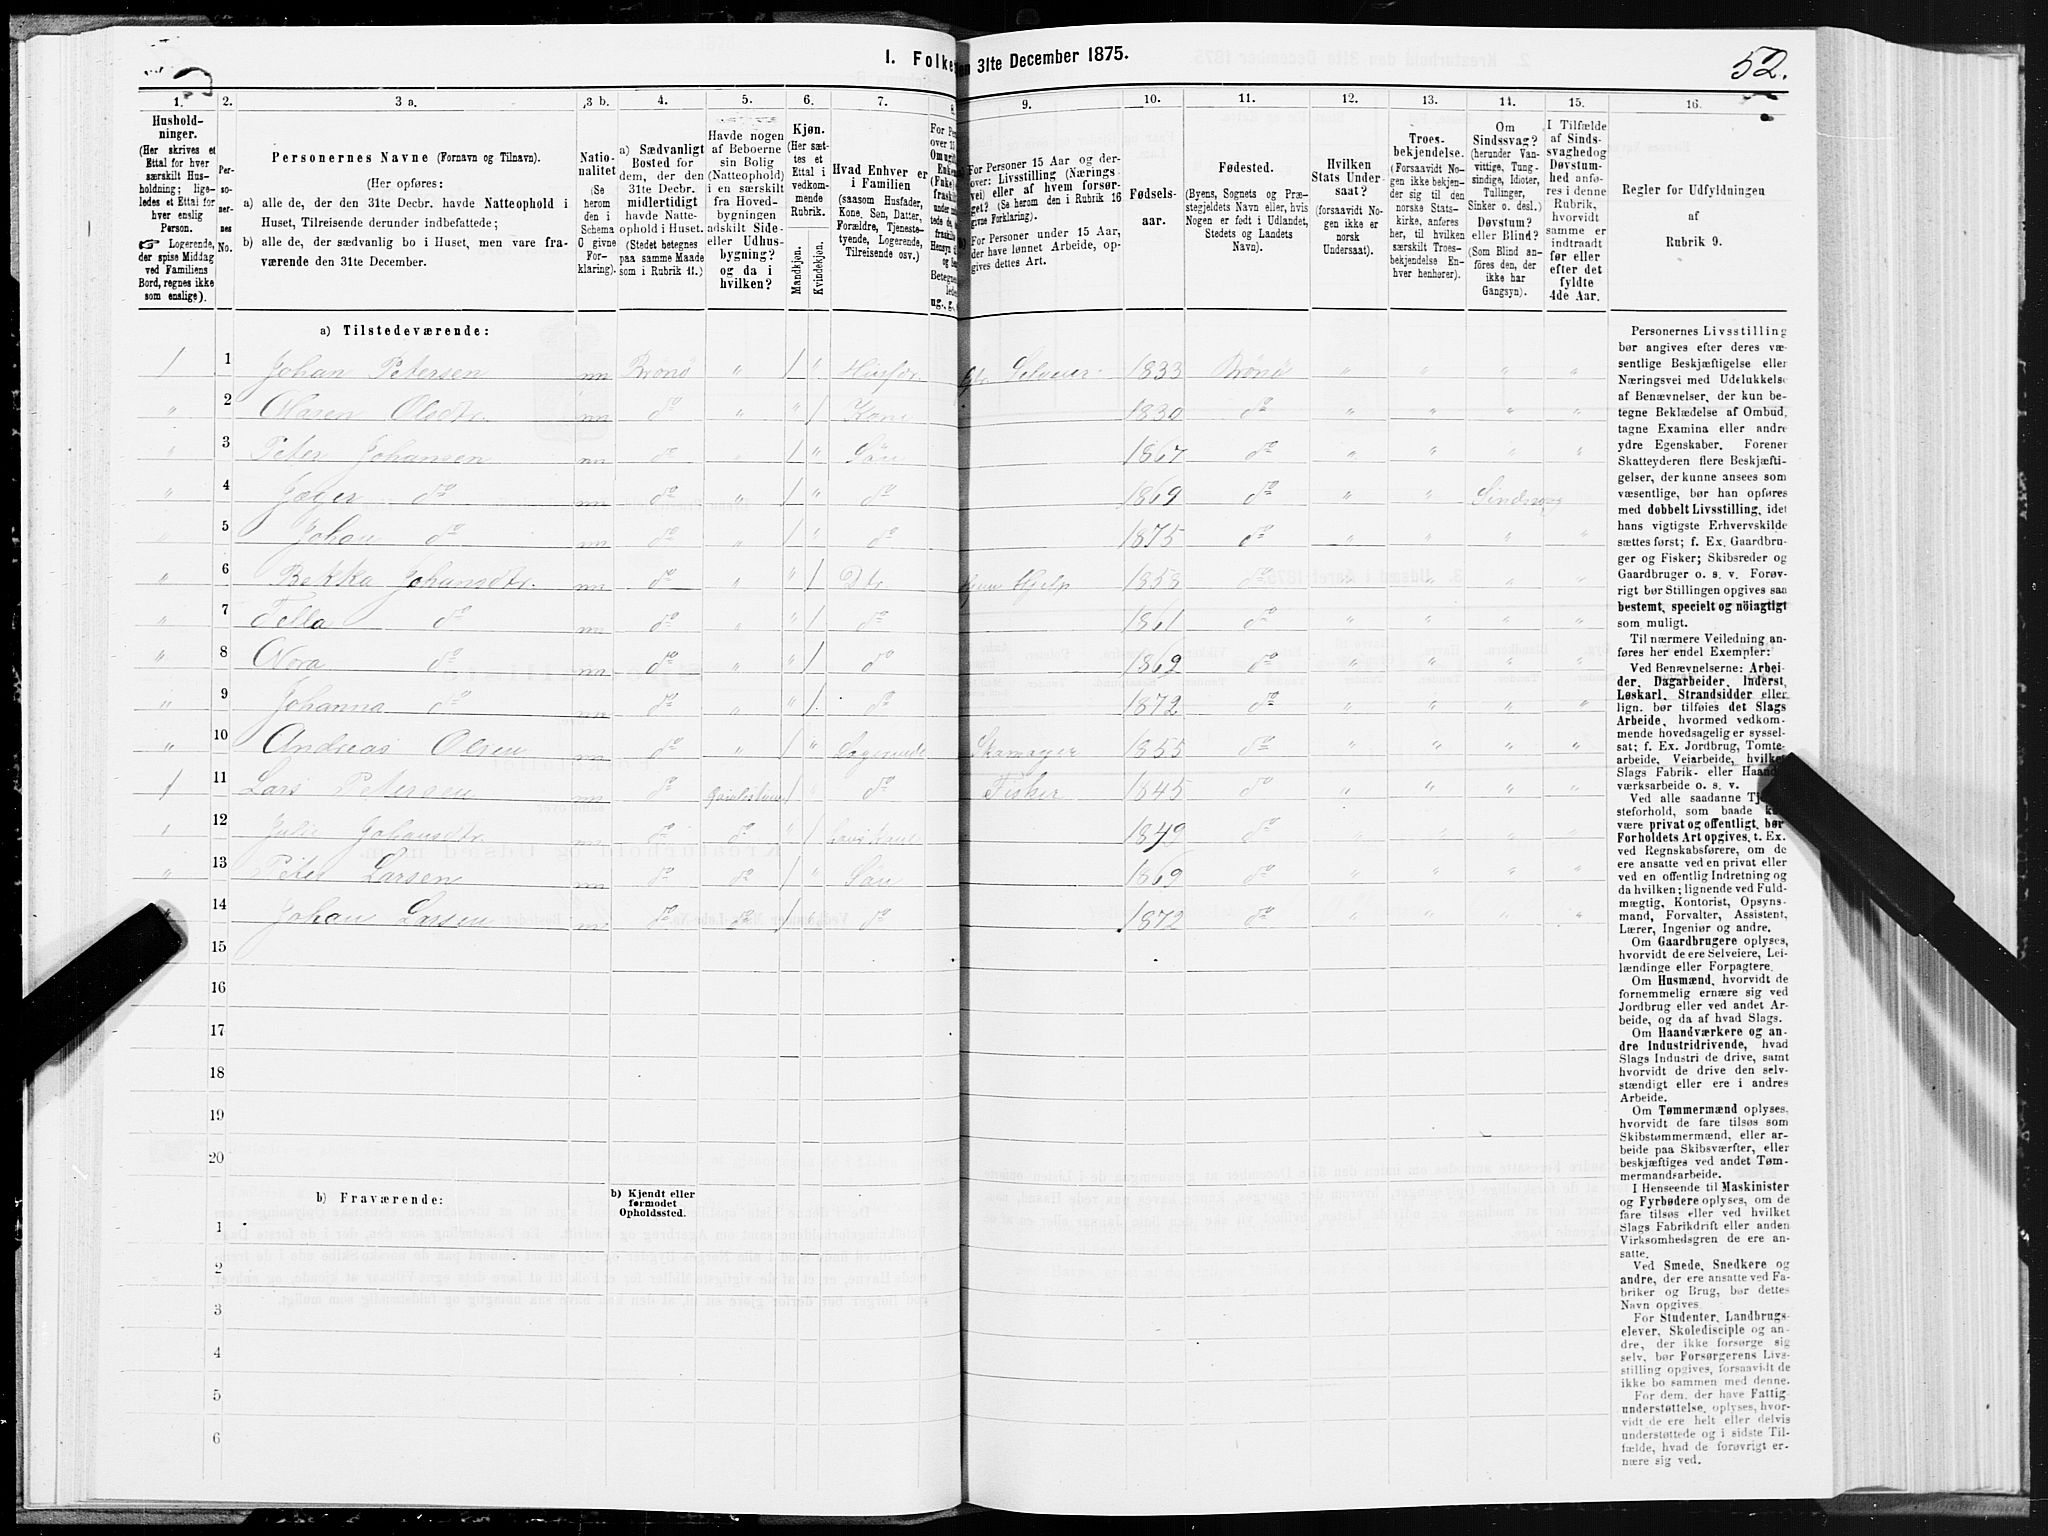 I. Folke en 31te December 1875.
52.
1. 2. 3 a. 3 b. 4. 5. 6. 7. 8. 9. 10. 11. 12. 13. 14. 15. 16.
Hushold-
ninger.
(Her skrives et
Ettal for hver
særskilt Hus-
holdning; lige-
ledes et Ettal for
hver enslig
Person.
Logerende,
der spise Middag
ved Familiens
Bord, regnes ikke
som enslige).
Per-
so-
ner-
nes
No.
Personernes Navne (Fornavn og Tilnavn).
(Her opføres:
a) alle de, der den 31te Decbr. havde Natteophold i
Huset, Tilreisende derunder indbefattede;
b) alle de, der sædvanlig bo i Huset, men vare fra-
værende den 31te December.
Natio-
nalitet
(Se
herom
den i
Schema
C givne
For-
klaring).
a) Sædvanligt
Bosted for
dem, der den
31te Decbr.
midlertidigt
havde Natte-
ophold i Huset.
(Stedet betegnes
paa samme Maade
som i Rubrik 11.)
Havde nogen
af Beboerne
sin Bolig
(Natteophold)
i en særskilt
fra Hoved-
bygningen
adskilt Side-
eller Udhus-
bygning?
og da i
hvilken?
Kjøn.
(Her sæt-
tes et
Ettal i
vedkom-
mende
Rubrik.
Mandkjøn.
Kvindekjøn.
Hvad Enhver er
i Familien
(saasom Husfader,
Kone, Søn, Datter,
Forældre, Tjeneste-
tyende, Logerende,
Tilreisende osv.)
For Personer 15 Aar og der-
over: Livsstilling (Nærings-
vei) eller af hvem forsør-
get? (Se herom den i Rubrik 16
givne Forklaring).
For Personer under 15 Aar,
der have lønnet Arbeide, op-
gives dettes Art.
Fødsels-
aar.
Fødested.
(Byens, Sognets og Præ-
stegjeldets Navn eller, hvis
Nogen er født i Udlandet,
Stedets og Landets
Navn).
Hvilken
Stats Under-
saat?
(forsaavidt No-
gen ikke er
norsk
Undersaat).
Troes-
bekjendelse.
(Forsaavidt No-
gen ikke bekjen-
der sig til den
norske Stats-
kirke, anføres
her, til hvilken
særskilt Troes-
bekjendelse En-
hver henhører).
Om
Sindssvag?
(herunder Van-
vittige, Tung-
sindige, Idioter,
Tullinger,
Sinker o. desl.)
Døvstum?
eller Blind?
(Som Blind an-
føres den, der
ikke har
Gangsyn).
I Tilfælde
af Sinds-
svaghedog
Døvstum-
hed anfø-
res i denne
Rubrik,
hvorvidt
samme er
indtraadt
før eller
efter det
fyldte
4de Aar.
Regler for Udfyldningen
af
Rubrik 9.
a) Tilstedeværende:
1 1 Johan Petersen nn Brønø " 1 " Husfdr. Selveier 1833 Brønø " " " "
" 2 Maren Olsdtr. nn do " " 1 Kone 1830 do " " " "
" 3 Peter Johansen nn do " 1 " Søn 1867 do " " " "
" 4 do nn do " 1 " do 1869 do " " Sindssvag
" 5 Johan do nn do " 1 " do 1875 do " " " "
" 6 Bekka Johansdtr. nn do " " 1 Dtr Hjelp 1858 do " " " "
" 7 do nn do " " 1 do 1861 do " " " "
" 8 Nora do nn do " " 1 do 1869 do " " " "
" 9 Johanna do nn do " " 1 do 1872 do " " " "
" 10 Andreas Olsen nn do " 1 " Logerende Skomager 1855 do " " " "
1 11 Lars Petersen nn do 1 " do Fisker 1845 do " " " "
" 12 Julie Johansdtr. nn do do " 1 1849 do " " " "
" 13 Peter Larsen nn do do 1 " Søn 1869 do " " " "
" 14 Johan Larsen nn do do 1 " do 1872 do " " " "
15
16
17
18
19
20
b) Fraværende:
b) Kjendt eller
formodet
Opholdssted.
1
2
3
4
5
6
Personernes Livsstilling
bør angives efter deres væ-
sentlige Beskjæftigelse eller
Næringsvei med Udelukkelse
af Benævnelser, der kun be-
tegne Beklædelse af Ombud,
tagne Examina eller andre
ydre Egenskaber. Forener
Skatteyderen flere Beskjæfti-
gelser, der kunne ansees som
væsentlige, bør han opføres
med dobbelt Livsstilling, idet
hans vigtigste Erhvervskilde
sættes først; f. Ex. Gaardbru-
ger og Fisker; Skibsreder og
Gaardbruger o. s. v. Forøv-
rigt bør Stillingen opgives saa
bestemt, specielt og nöiagtigt
som muligt.
Til nærmere Veiledning an-
føres her endel Exempler:
Ved Benævnelserne: Arbei-
der, Dagarbeider, Inderst,
Løskarl, Strandsidder eller
lign. bør tilføies det Slags
Arbeide, hvormed vedkom-
mende hovedsagelig er syssel-
sat; f. Ex. Jordbrug, Tomte-
arbeide, Veiarbeide, hvilket
Slags Fabrik- eller Haand-
værksarbeide o. s. v.
Ved alle saadanne Tje-
nesteforhold, som baade kan
være privat og offentligt, bør
Forholdets Art opgives, t. Ex.
ved Regnskabsførere, om de
ere ansatte ved en privat eller
ved en offentlig Indretning og
da hvilken; lignende ved Fuld-
mægtig, Kontorist, Opsyns-
mand, Forvalter, Assistent,
Lærer, Ingeniør og andre.
Om Gaardbrugere oplyses,
hvorvidt de ere Selveiere, Lei-
lændinge eller Forpagtere.
Om Husmænd, hvorvidt de
fornemmelig ernære sig ved
Jordbrug eller ved andet Ar-
beide, og da af hvad Slags.
Om Haandværkere og an-
dre Industridrivende, hvad
Slags Industri de drive, samt
hvorvidt de drive den selv-
stændigt eller ere i andres
Arbeide.
Om Tømmermænd oplyses,
hvorvidt de fare tilsøs som
Skibstømmermænd, eller ar-
beide paa Skibsværfter, eller
beskjæftiges ved andet Tøm-
mermandsarbeide.
I Henseende til Maskinister
og Fyrbødere oplyses, om de
fare tilsøs eller ved hvilket
Slags Fabrikdrift eller anden
Virksomhedsgren de ere an-
satte.
Ved Smede, Snedkere og
andre, der ere ansatte ved Fa-
briker og Brug, bør dettes
Navn opgives.
For Studenter, Landbrugs-
elever, Skoledisciple og an-
dre, der ikke forsørge sig
selv, bør Forsørgerens Livs-
stilling opgives, forsaavidt de
ikke bo sammen med denne.
For dem, der have Fattig-
understøttelse, oplyses, hvor-
vidt de ere helt eller delvis
understøttede og i sidste Til-
fælde, hvad de forøvrigt er-
nære sig ved.